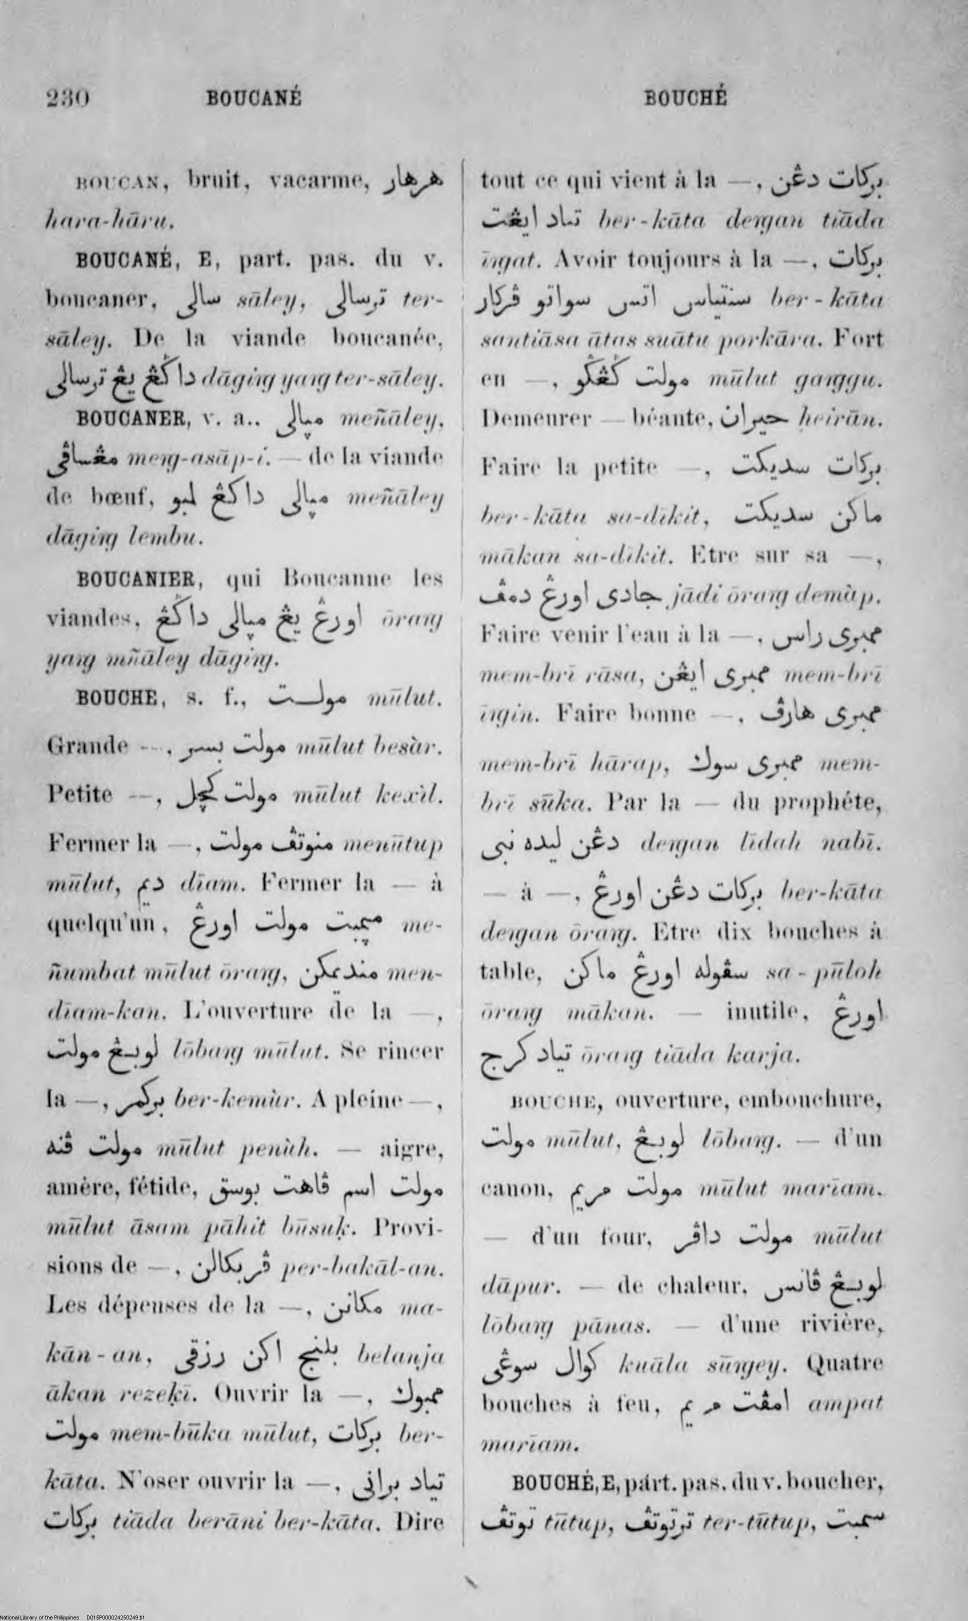 230 BOUCANÉ BOUCHÉ
BOUCAN, bruit, vacarme, هرهار
hara-hāru.
BOUCANÉ, E, part. pas. du v.
boucaner, سالي sāley, ترسالي ter-
sāley. De la viande boucanée,
داڬڠ يڠ ترسالي dāgiņg yaņg ter-sāley.
BOUCANER, v. a., مپالي meñāley,
مڠساڤي meņg-asāp-i. — de la viande
de bœuf, مپالي داڬڠ لمبو meñāley
dāgiņg lembu.
BOUCANIER, qui Boucanne les
viandes, اورڠ يڠ مپالي داڬڠ ōraņg
yaņg mñāley dāgiņg.
BOUCHE, s. f., مولت mūlut.
Grande —, مولت بسر mūlut besàr.
Petite —, مولت كچل mūlut kexìl.
Fermer la —, منوتڤ مولت menūtup
mūlut, ديم dīam. Fermer la — à
quelqu'un, ميمبت مولت اورڠ me-
ñumbat mūlut ōraņg, منديمكن men-
dīam-kan. L'ouverture de la —,
لوبڠ مولت lōbaņg mūlut. Se rincer
la —, بركمر ber-kemùr. A pleine —,
مولت ڤنه mūlut penùh. — aigre,
amère, fétide, مولت اسم ڤاهت بوسق
mūlut āsam pāhit būsuķ. Provi-
sions de —, ڤربكالن per-bakāl-an.
Les dépenses de la —, مكانن ma-
kān-an, بلنج اكن رزقي belanja
ākan rezeķī. Ouvrir la —, ممبوك
مولت mem-būka mūlut, بركات ber-
kāta. N'oser ouvrir la —, تياد براني
بركات tiāda berāni ber-kāta. Dire
tout ce qui vient à la —, بركات دڠن
تياد ايڠت ber-kāta deņgan tiāda
īņgat. Avoir toujours à la —, بركات
سنتياس اتس سواتو ڤركار ber-kāta
santiāsa ātas suātu porkāra. Fort
en —, مولت ڬڠڬو mūlut gaņggu.
Demeurer — béante, حيران ḥeirān.
Faire la petite —, بركات سديكت
ber-kāta sa-dīkit, ماكن سديكت
mākan sa-dīkit. Etre sur sa —,
جادي اورڠ دمڤ jādi ōraņg demàp.
Faire venir l'eau à la —, ممبري راس
mem-brī rāsa, ممبري ايڠن mem-brī
īņgin. Faire bonne —, ممبري هارڤ
mem-brī hārap, ممبري سوك mem-
brī sūka. Par la — du prophéte,
دڠن ليده نبي deņgan līdah nabī.
— à —, بركات دڠن اورڠ ber-kāta
deņgan ōraņg. Etre dix bouches à
table, سڤوله اورڠ ماكن sa-pūloh
ōraņg mākan. — inutile, اورڠ
تياد كرج ōraņg tiāda karja.
BOUCHE, ouverture, embouchure,
مولت mūlut, لوبڠ lōbaņg. — d'un
canon, مولت مريم mūlut marīam.
— d'un four, مولت داڤر mūlut
dāpur. — de chaleur, لوبڠ ڤانس
lōbaņg pānas. — d'une rivière,
كوال سوڠي kuāla sūņgey. Quatre
bouches à feu, امڤت مريم ampat
marīam.
BOUCHÉ, E, part. pas. du v. boucher,
توتڤ tūtup, ترتوتڤ ter-tūtup, سمبت
National Library of the Philippines